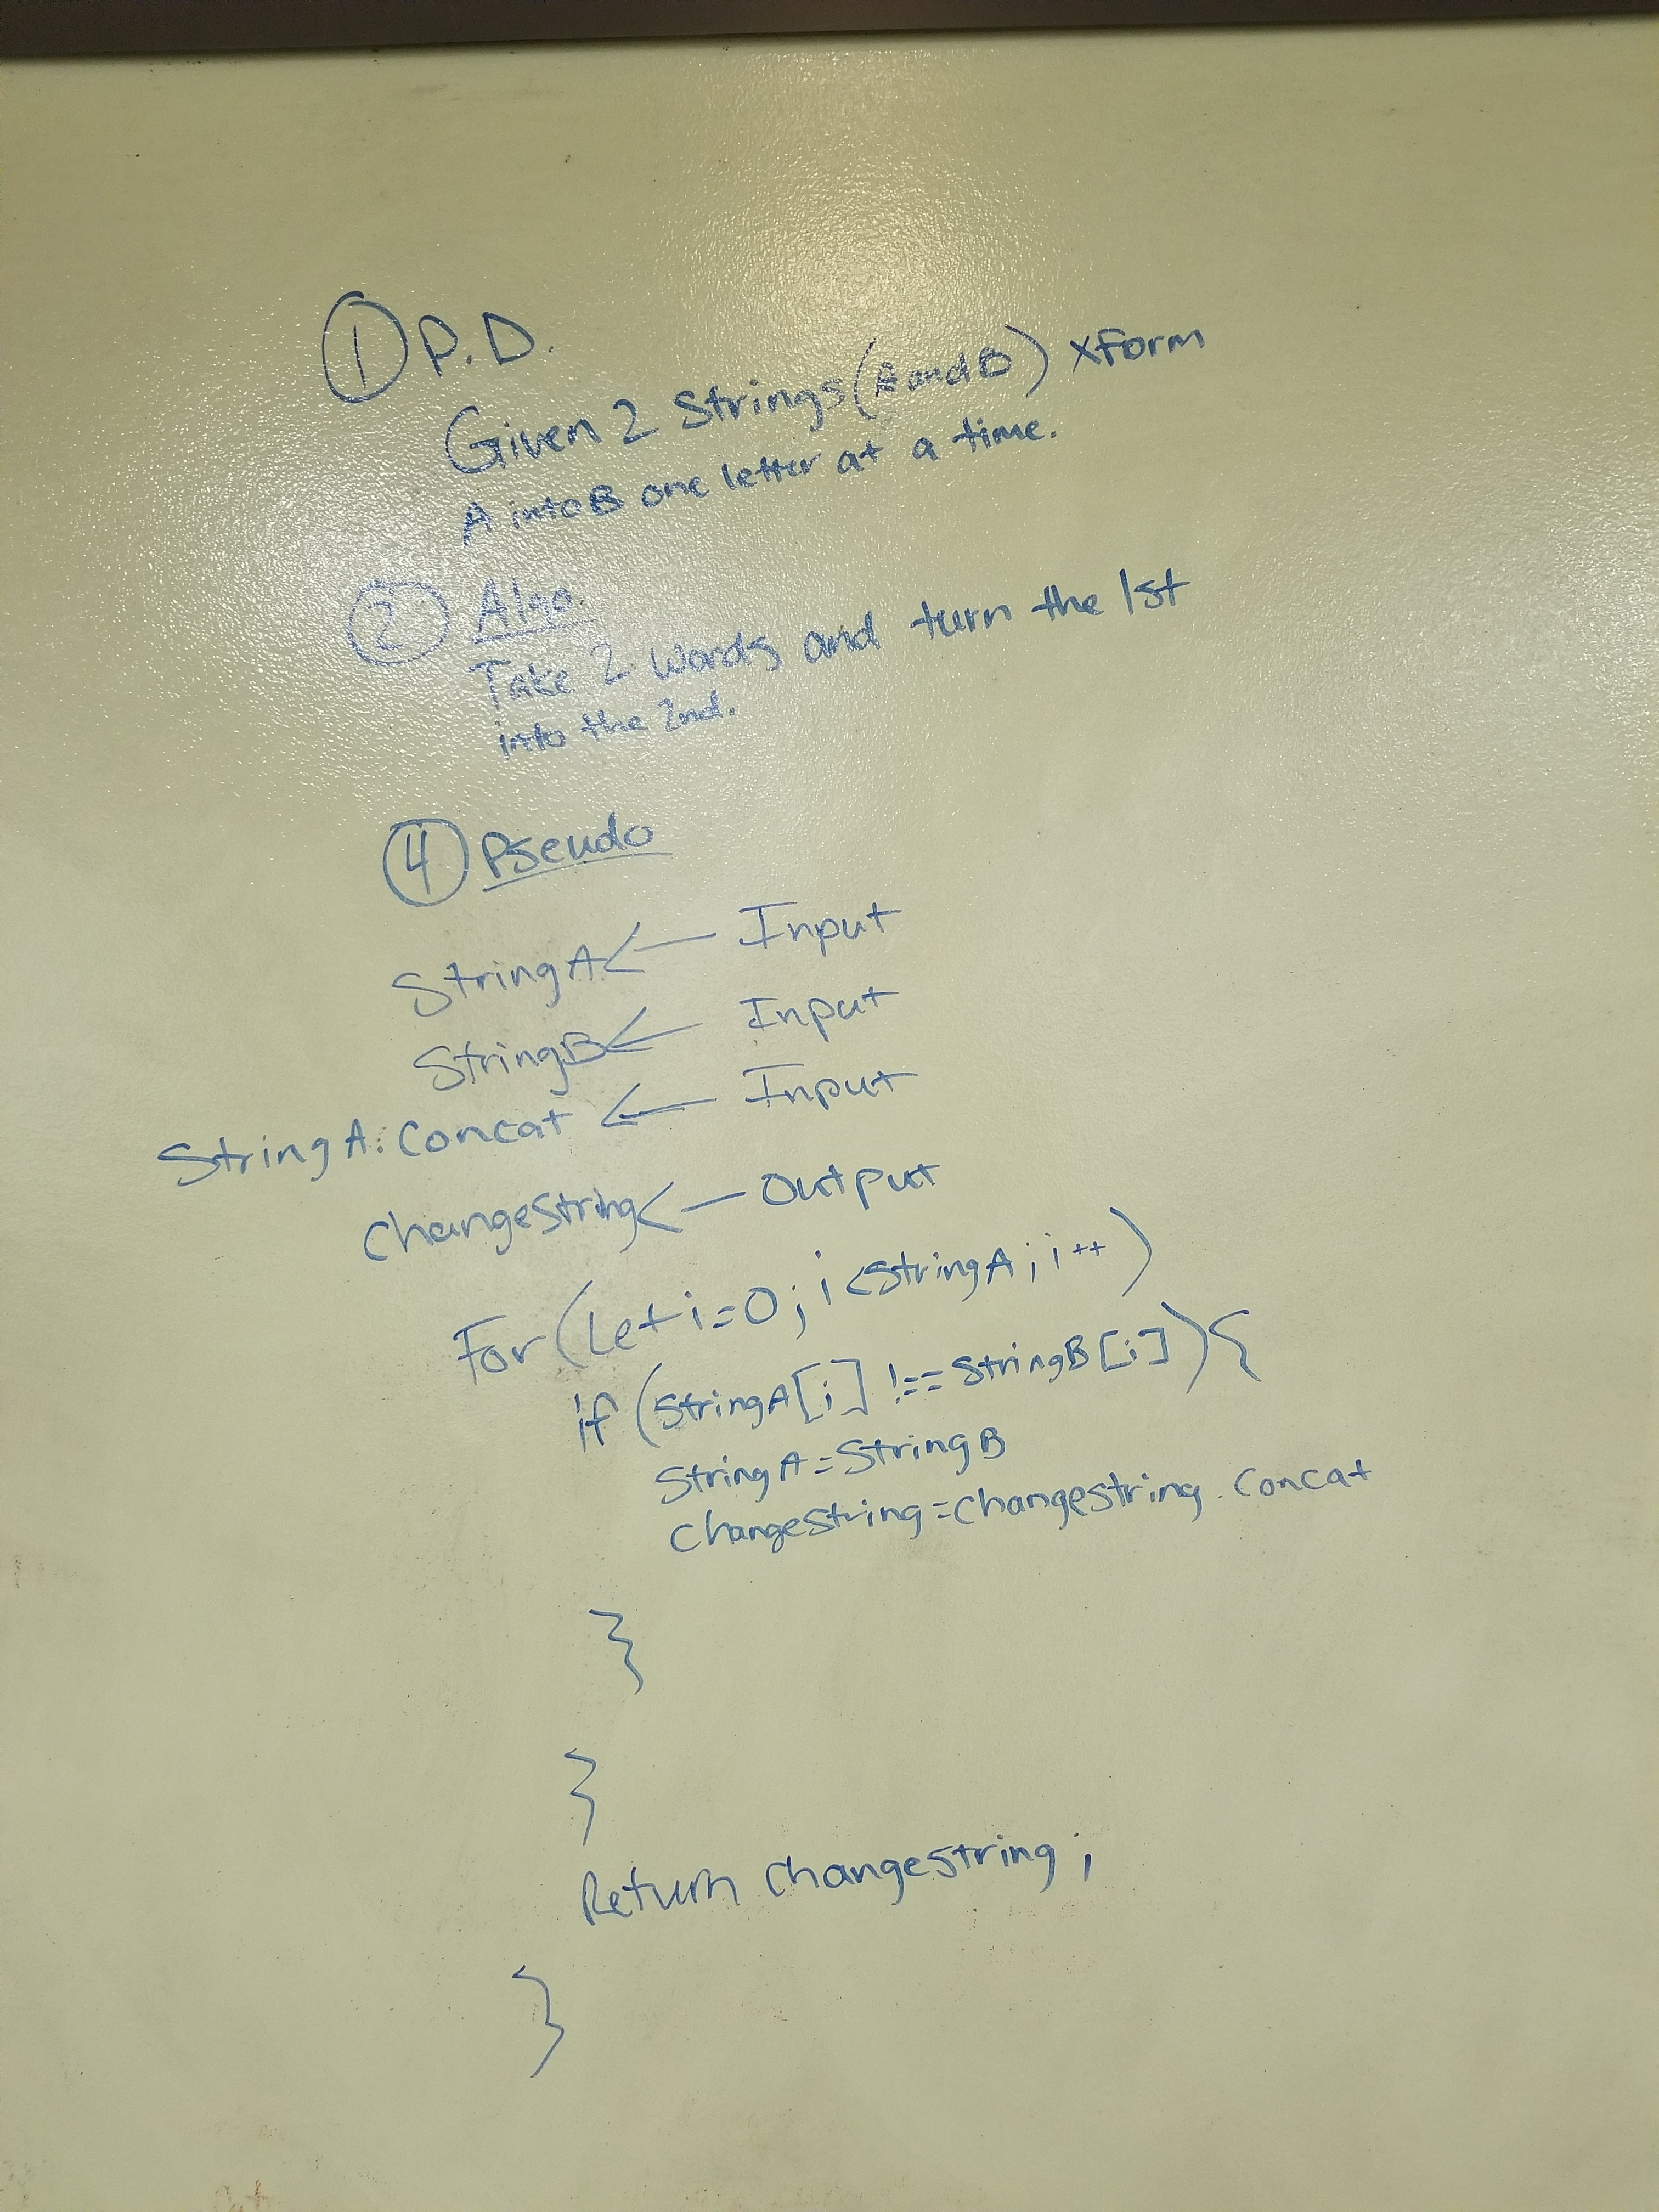 ① P.D.
Given 2 Strings (A and B) xform
A into B one letter at a time.
② Algo.
Take 2 words and turn the 1st
into the 2nd.
④ Pseudo
StringA <— Input
StringB <— Input
StringA.concat <— Input
changestring <— output
For (Let i=0; i<StringA; i++)
if (StringA[i] !== StringB[i]) {
StringA = StringB
changeString = changestring.concat
}
}
Return changestring;
}